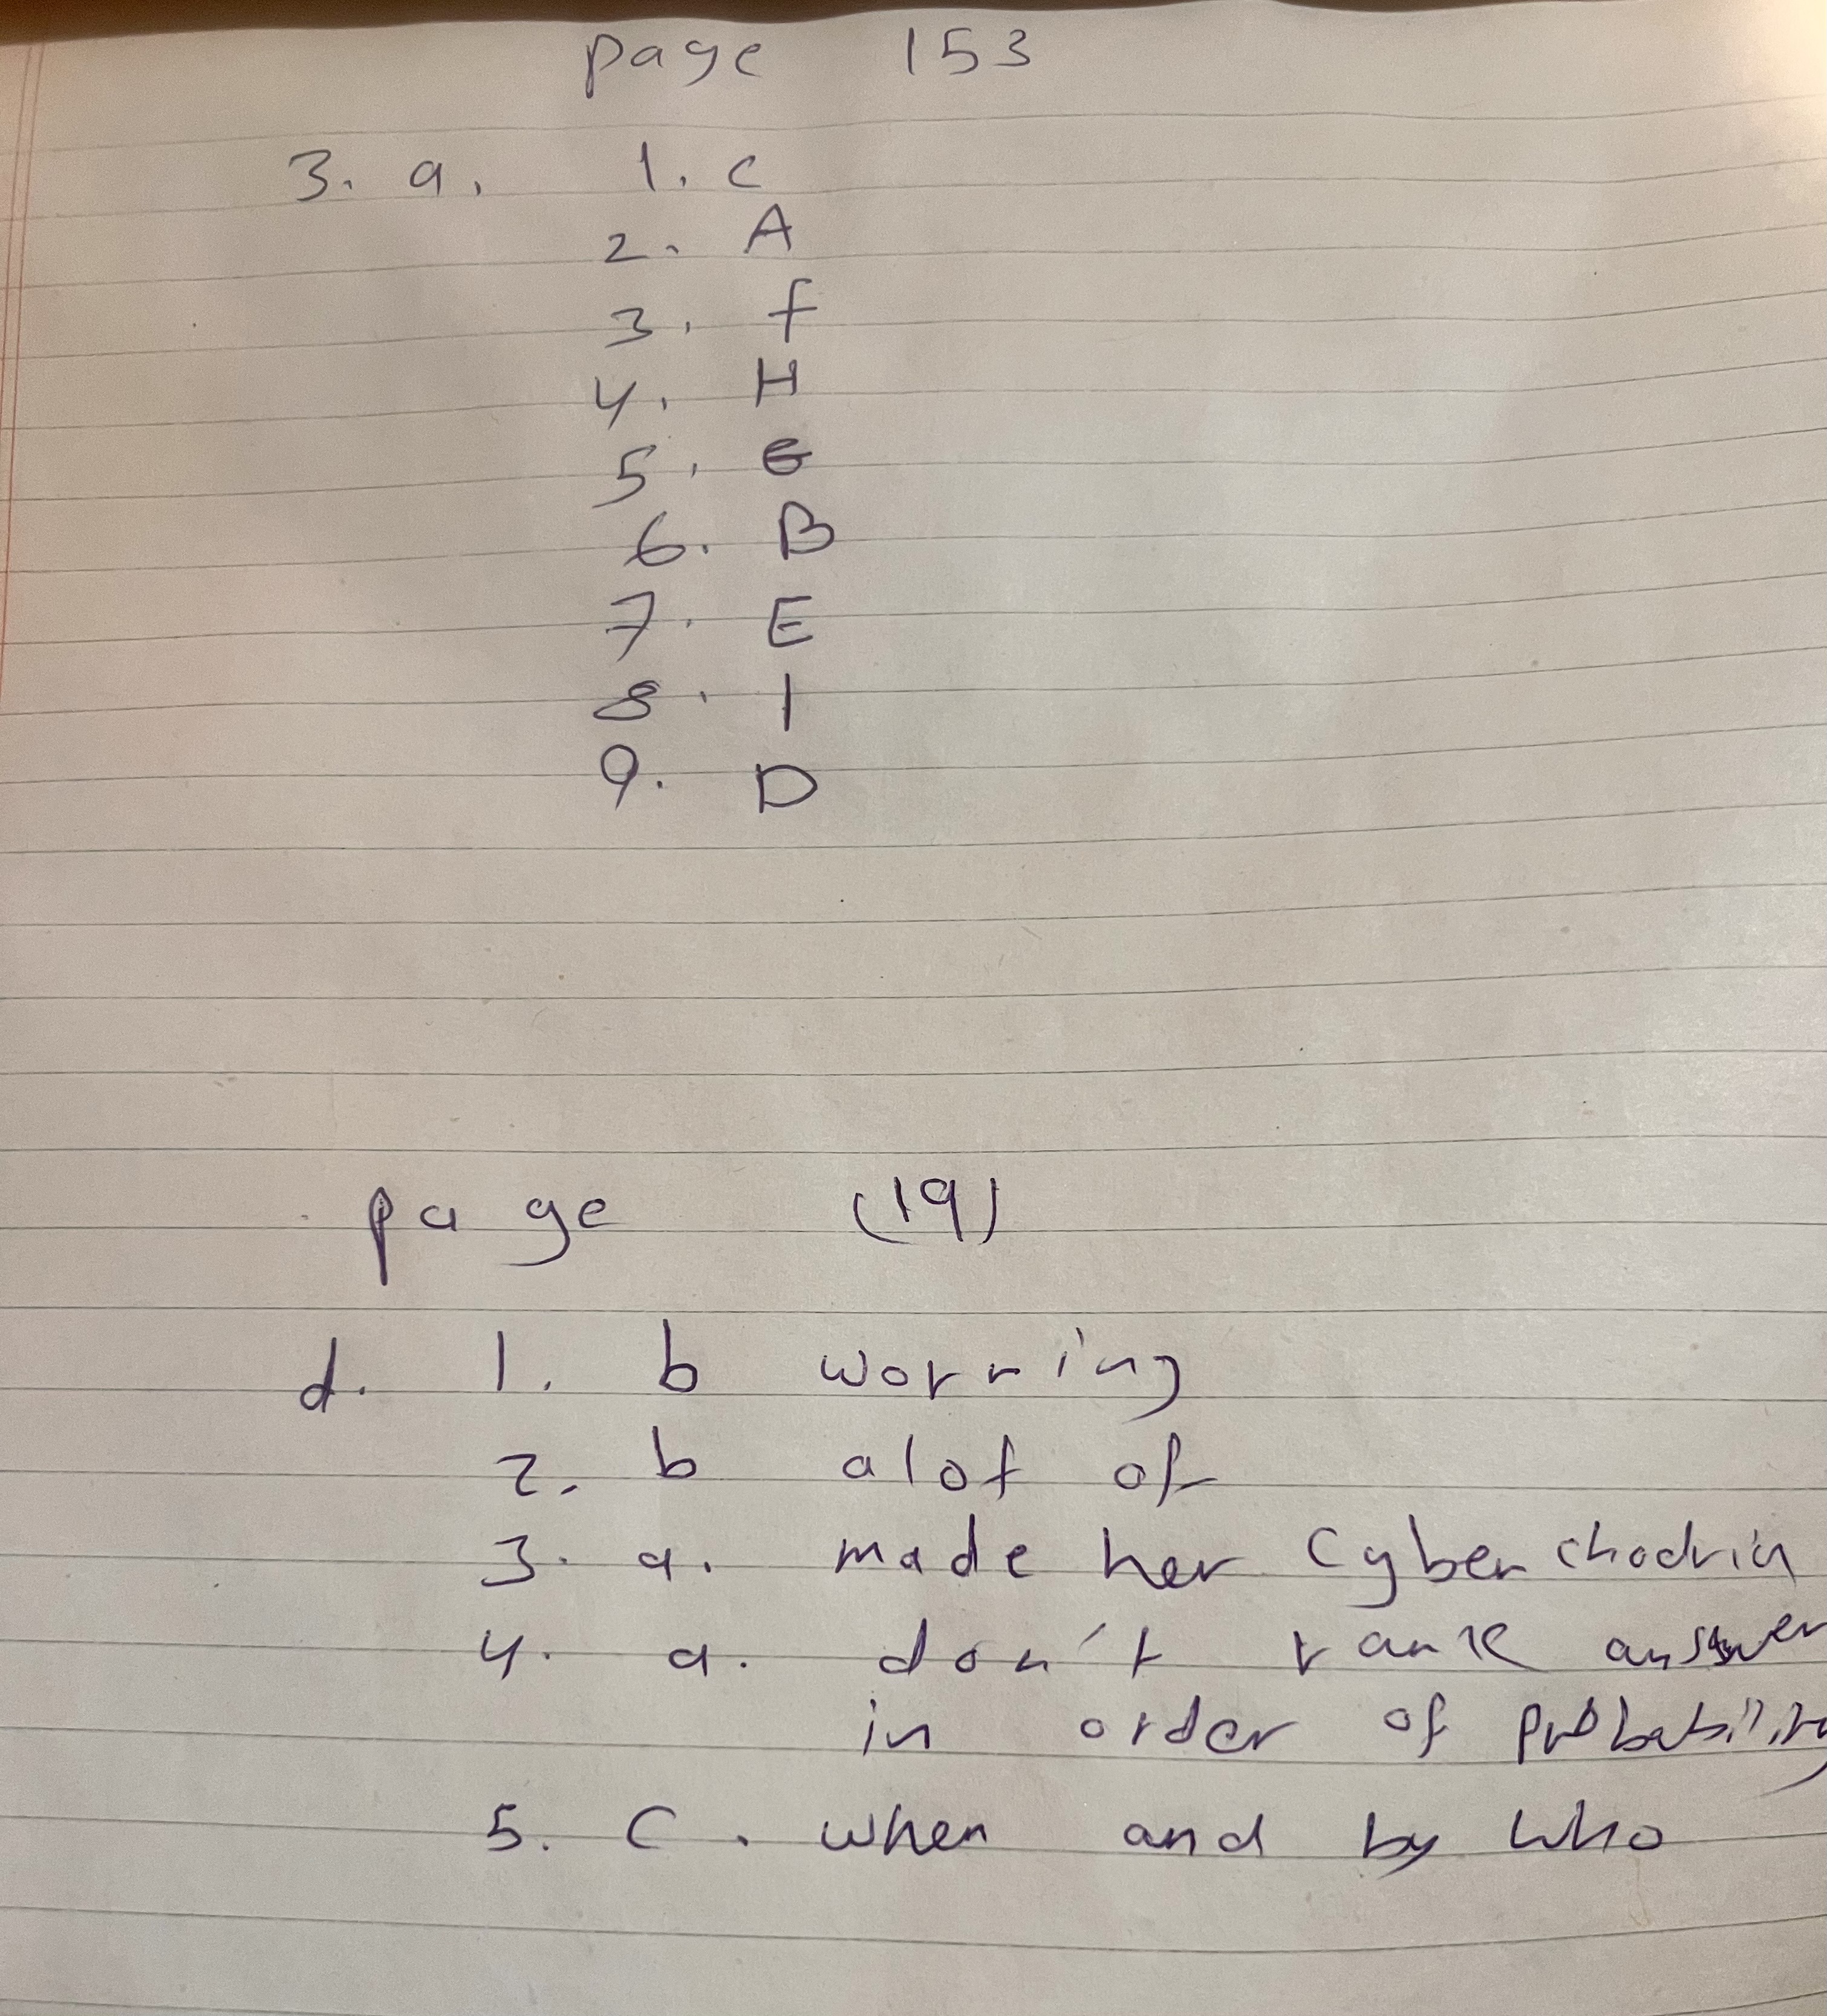 page 153
3. a. 1. c
2. A
3. f
4. H
5. G
6. B
7. E
8. I
9. D
page (19)
d. 1. b worring
2. b alot of
3. a. made her Cyber chodria
4. a. don't rank answer
in order of probability
5. C. when and by who